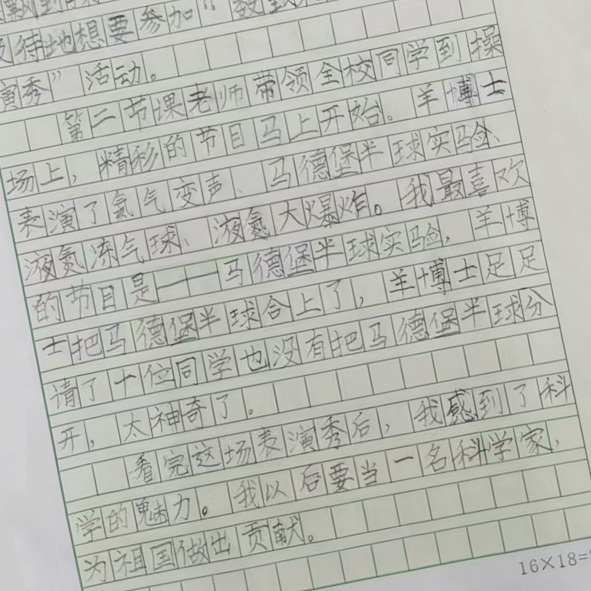 及待地想要参加“
演秀”活动。
第二节课老师带领全校同学到操
场上，精彩的节目马上开始。羊博士
表演了氦气变声、马德堡半球实验、
液氮冻气球、液氮大爆炸。我最喜欢
的节目是——马德堡半球实验，羊博
士把马德堡半球合上了，羊博士足足
请了一位同学也没有把马德堡半球分
开，太神奇了。
看完这场表演秀后，我感到了科
学的魅力。我以后要当一名科学家，
为祖国做出贡献。
16×18=